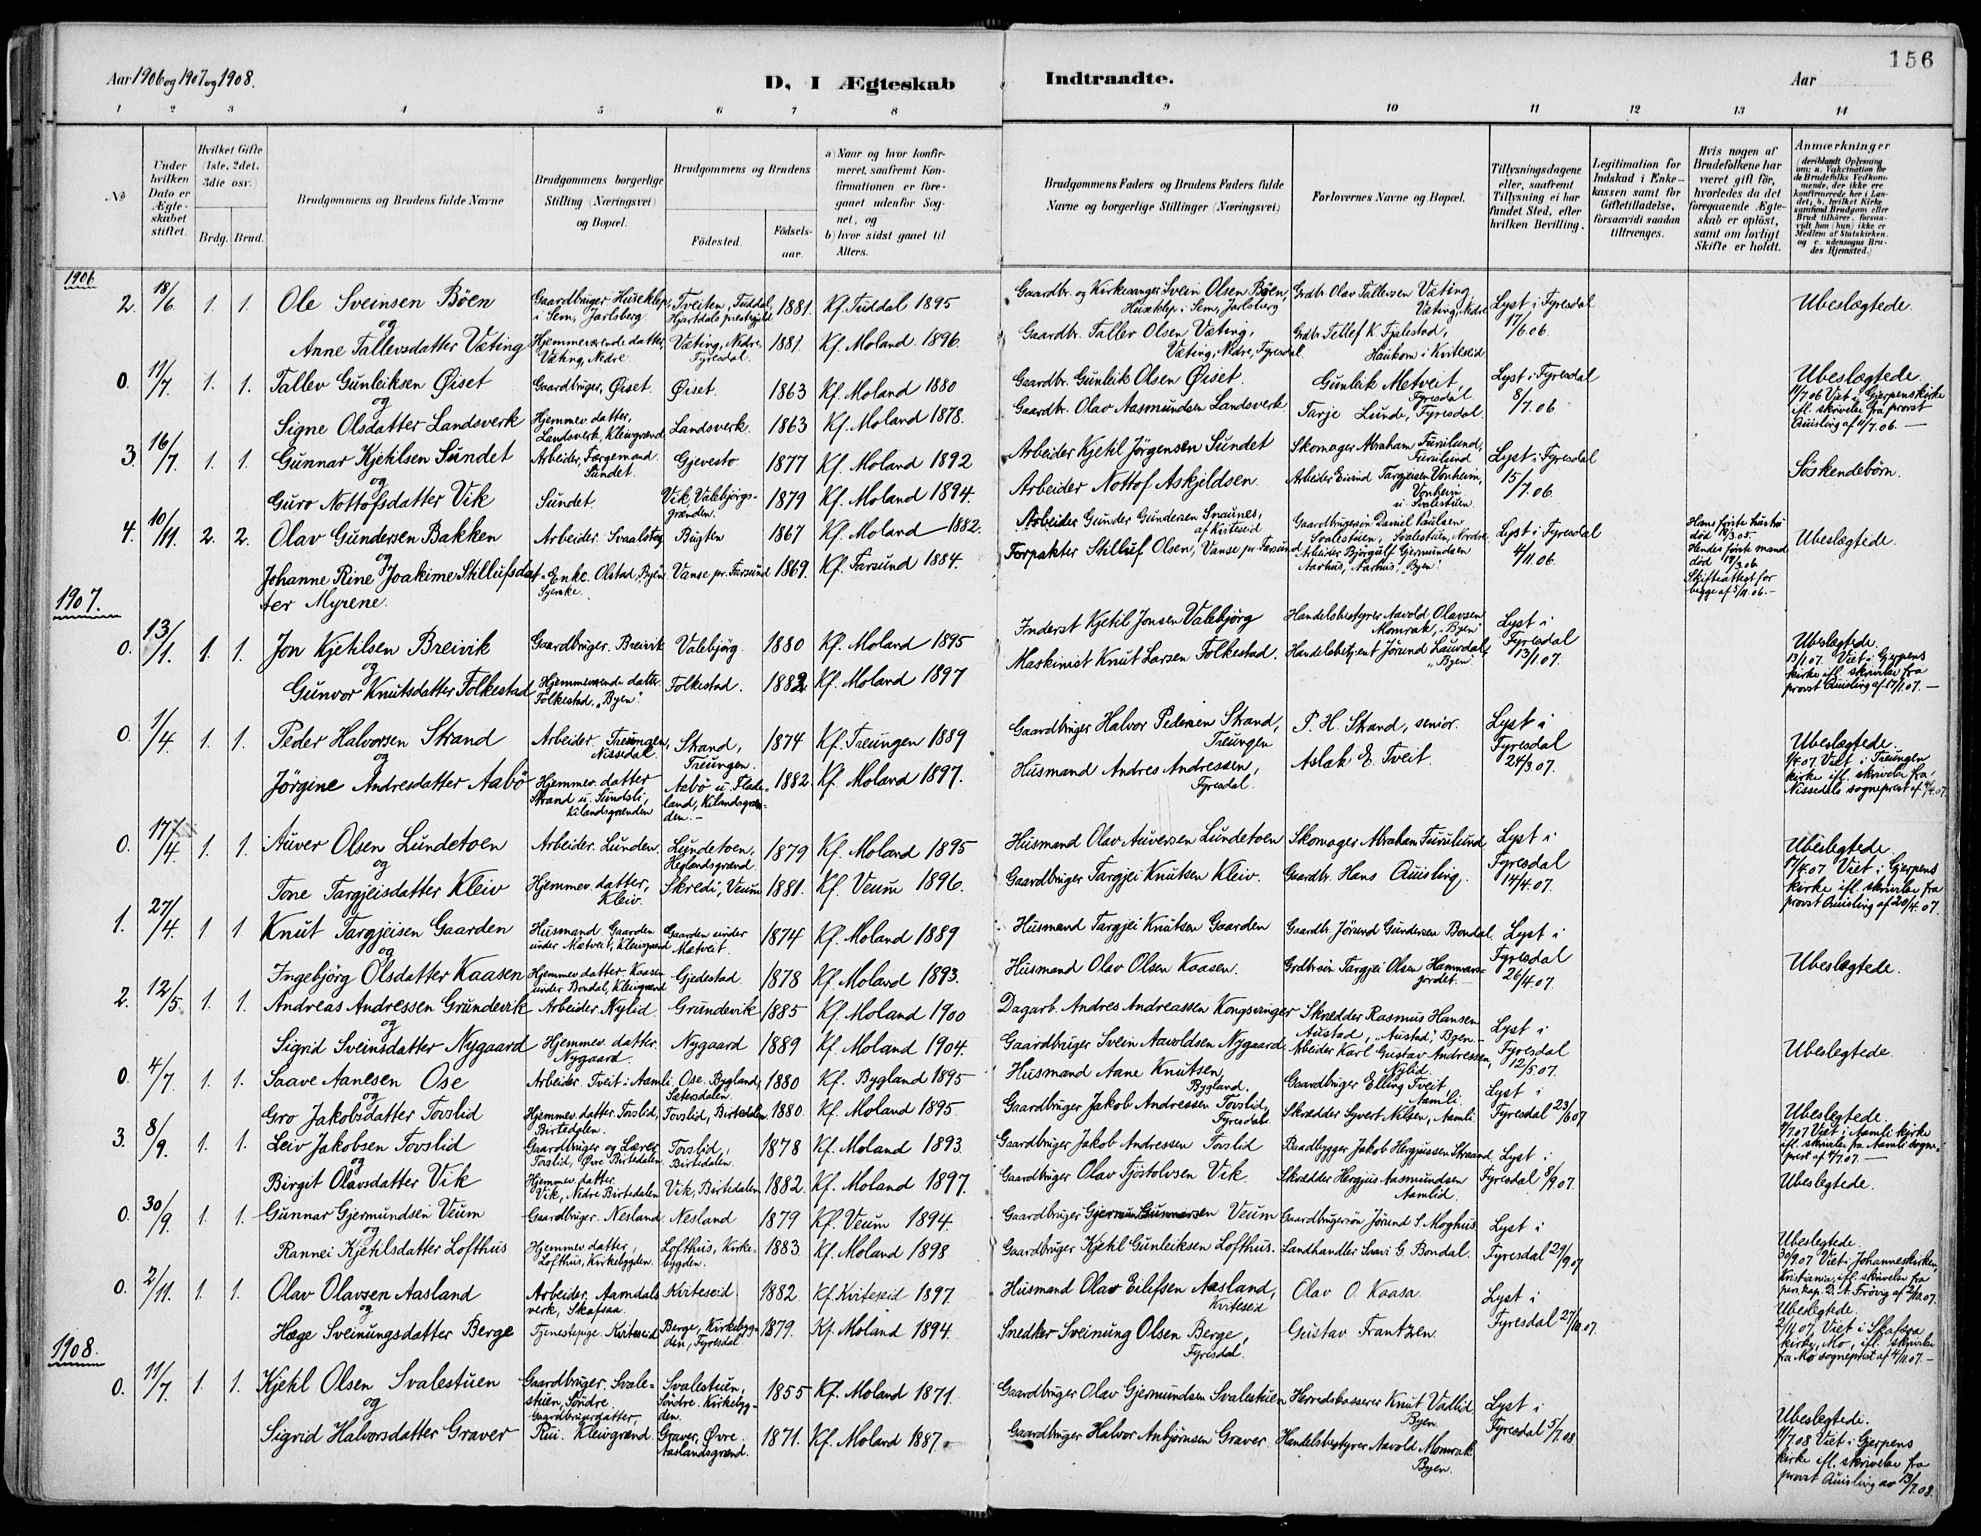 156
Aar 1906 og 1907 og 1908.
D, I Ægteskab Indtraadte.
Aar
1 2 3 4 5 6 7 8 9 10 11 12 13 14
No
Under hvilken Dato er Ægteskabet stiftet.
Hvilket Gifte (1ste, 2det, 3die osv.)
Brdg. Brud.
Brudgommens og Brudens fulde Navne
Brudgommens borgerlige Stilling (Næringsvei) og Bopæl.
Brudgommens og Brudens
Födested.
Födselsaar.
a) Naar og hvor konfirmeret, saafremt Konfirmationen er foregaaet udenfor Sognet, og
b) hvor sidst gaaet til Alters.
Brudgommens Faders og Brudens Faders fulde Navne og borgerlige Stillinger (Næringsvei)
Forlovernes Navne og Bopæl.
Tillysningsdagene eller, saafremt Tillysning ei har fundet Sted, efter hvilken Bevilling.
Legitimation for Indskud i Enkekassen samt for Giftetilladelse, forsaavidt saadan tiltrænges.
Hvis nogen af Brudefolkene har været gift för, hvorledes da det foregaaende Ægteskab er oplöst, samt om lovligt Skifte er holdt.
Anmærkninger
1906
2. 18/6 1. 1. Ole Sveinsen Böen Gaardbruger Huseklep i Sem, Jarlsberg Tveiten, Tuddal Hjartdals prestegjeld 1881. Kf. Tuddal 1895 Gaardbr. og Kirkesanger Svein Olsen Böen, Huseklep i Sem, Jarlsberg Grdbr. Olav Tallevsen Væting Væting, Nedre Lyst i Fyresdal 17/6 06. Ubeslægtede.
og
Anne Tallevsdatter Væting Hjemmeværende datter, Væting, Nedre Væting, Nedre, Fyresdal 1881. Kf. Moland 1896. Gaardbr. Tallev Olsen Væting, Væting, Nedre, Fyresdal Grdbr. Tellef K. Fjalestad, Haukom i Kviteseid
0. 11/7 1. 1. Tallev Gunleiksen Øiset Gaardbruger, Øiset. Øiset. 1863 Kf. Moland 1880 Gaardbr. Gunleik Olsen Øiset. Gunleik Metveit, Fyresdal Lyst i Fyresdal 8/7. 06 Ubeslægtede. 11/7 06 Viet i Gjerpens kirke ifl. skrivelse fra provst Quisling af 11/7. 06. —
og
Signe Olsdatter Landsverk Hjemmev. datter, Landsverk, Kleivgrænd Landsverk. 1863 Kf. Moland 1878. Gaardbr. Olav Aasmundsen Landsverk Tarje Lunde, Fyresdal.
3. 16/7. 1. 1. Gunnar Kjetilsen Sundet Arbeider, Færgemand. Sundet. Gjevesto 1877 Kf. Moland 1892 Arbeider Kjetil Jörgensen Sundet Skomager Abraham Furulund, Furulund Lyst i Fyresdal 15/7. 06. Söskendebörn.
og
Guro Nottofsdatter Vik Sundet. Vik Valebjörgsgrænden. 1879 Kf. Moland 1894. Arbeider Nottof Askjeldsen. Arbeider Eivind Targjeisen Vonheim, Vonheim u. Svalestuen
4. 10/11. 2. 2. Olav Gundersen Bakken Arbeider. Svaalstog Bugten 1867 Kf. Moland 1882. Arbeider Gunder Gundersen Snaunes, af Kviteseid Gaardbrugersön Daniel Paulsen Svalestuen, Svalestuen, Nordre Lyst i Fyresdal 4/11. 06. Hans förste hustru död 19/3. 05. Hendes förste mand död 17/3 06. Skifteattest for begge af 5/11 06. — Ubeslægtede.
og
Johanne Rine Joakime Stillufsdatter Myrene. Enke. Olstad, "Byen" Vanse pr. Farsund 1869. Kf. Farsund 1884. Forpakter Stilluf Olsen, Vanse pr. Farsund Arbeider Bjørgulf Gjermundsen Aarhus, Aarhus, "Byen".
1907.
0. 13/1. 1. 1. Jon Kjetilsen Breivik Gaardbruger. Breivik Valebjörg. 1880 Kf. Moland 1895 Inderst Kjetil Jonsen Valebjörg Handelsbestyrer Aavold Olavsen Momrak, "Byen" Lyst i Fyresdal 13/1. 07. Ubeslægtede. 13/1 07. Viet i Gjerpens kirke ifl. skrivelse fra provst Quisling af 17/1. 07. —
og
Gunvor Knutsdatter Folkestad Hjemmeværende datter. Folkestad. "Byen" Folkestad. 1882 Kf. Moland 1897 Maskinist Knut Larsen Folkestad. Handelsbetjent Jörund Lauvdal, "Byen"
0. 1/4. 1. 1. Peder Halvorsen Strand Arbeider. Treungen, Nissedal. Strand, Treungen. 1874 Kf. Treungen 1889 Gaardbruger Halvor Pedersen Strand, Treungen P. H. Strand, senior. Lyst i Fyresdal 24/3 07. Ubeslægtede. 1/4. 07. Viet i Treungen kirke ifl. skrivelse fra Nissedals sogneprest af 4/4. 07.
og
Jörgine Andresdatter Aabö Hjemmev. datter Strand u. Sundsli, Kilandsgrænden Aabö u. Fladeland, Kilandsgrænden. — 1882 Kf. Moland 1897. Husmand Andres Andressen, Fyresdal. Aslak E. Tveit.
0. 17/4. 1. 1. Auver Olsen Lundetoen Arbeider. Lunden. Lundetoen, Heglandsgrænd. 1879 Kf. Moland 1895 Husmand Olav Auversen Lundetoen Skomager Abraham Furulund Lyst i Fyresdal 14/4. 07. Ubeslægtede. 17/4. 07 Viet i Gjerpens kirke ifl. skrivelse fra provst Quisling af 20/4. 07.
og
Tone Targjeisdatter Kleiv Hjemmev. datter, Kleiv. Skredi, Veum 1881. Kf. Veum 1896. Gaardbruger Targjei Knutsen Kleiv. Gaardbr. Hans Quisling.
1. 27/4. 1 1 Knut Targjeisen Gaarden Husmand. Gaarden under Mætveit, Kleivgrænd Gaarden under Mætveit 1874 Kf. Moland 1889 Husmand Targjei Knutsen Gaarden Gaardbr. Jörund Gundersen Bondal. Lyst i Fyresdal 26/4. 07. Ubeslægtede.
og
Ingebjörg Olsdatter Kaasen Hjemmev. datter. Kaasen under Bondal, Kleivgrænd Gjedestad 1878 Kf. Moland 1893. Husmand Olav Olsen Kaasen. Grdbrsön Targjei Olsen Hammarsjordet. —
2. 12/5. 1. 1. Andreas Andressen Grundevik Arbeider. Nylid. Grundevik 1885 Kf. Moland 1900 Dagarb. Andres Andreassen Kongsvinger Skrædder Rasmus Hansen Austad, "Austad", Byen — Lyst i Fyresdal 12/5. 07. Ubeslægtede.
og
Sigrid Sveinsdatter Nygaard Hjemmev. datter. Nygaard. Nygaard 1889 Kf. Moland 1904. Gaardbruger Svein Aavoldsen Nygaard Arbeider Karl Gustav Andressen, Nylid.
0. 4/7. 1. 1. Saave Aanesen Ose Arbeider. Tveit i Aamli Ose. Bygland, Sætersdalen 1880 Kf. Bygland 1895 Husmand Aane Knutsen, Bygland. Gaardbruger Elling Tveit, Aamli. Lyst i Fyresdal 23/6 07 Ubeslægtede. 4/7 07 Viet i Aamli kirke ifl. skrivelse fra Aamli sogneprest af 4/7 07. —
og
Gro Jakobsdatter Tovslid Hjemmev. datter. Tovslid, Birtedalen. Tovslid, Birtedalen 1880. Kf. Moland 1895. Gaardbruger Jakob Andressen Tovslid, Fyresdal. Skrædder Syvert Nilsen, Aamli.
3. 8/9. 1. 1. Leiv Jakobsen Tovslid Gaardbruger og Lærer Tovslid, Øvre Birtedalen Tovslid, Birtedalen. 1878 Kf. Moland 1893. Gaardbruger Jakob Andressen Tovslid Baadbygger Jakob Hergjussen Straand Lyst i Fyresdal 8/9 07. Ubeslægtede.
og
Birgit Olavsdatter Vik Hjemmev. datter. Vik, Nedre Birtedalen Vik, Birtedalen 1882. Kf. Moland 1897. Gaardbruger Olav Tjöstolvsen Vik. Skrædder Hergjus Aasmundsen Aamlid.
0. 30/9. 1. 1. Gunnar Gjermundsen Veum Gaardbruger. Nesland. Nesland 1879 Kf. Veum 1894. Gaardbruger Gjermun Gunnarsen Veum Gaardbrugersön Jörund S. Moghus Lyst i Fyresdal 29/9 07 Ubeslægtede. 30/9. 07 Viet i Johanneskirken, Kristiania, ifl. skrivelse fra pers. kap. D. A. Frövig af 2/10. 07.
og
Rannei Kjetilsdatter Lofthus Hjemmev. datter, Lofthus, Kirkebygden. Lofthus, Kirkebygden. 1883. Kf. Moland 1898 Gaardbruger Kjetil Gunleiksen Lofthus. Landhandler Saavi G. Bondal.
0. 2/11. 1. 1. Olav Olavsen Aasland Arbeider. Aamdals verk, Skafsaa. Kviteseid 1882. Kf. Kviteseid 1897. Husmand Olav Eilefsen Aasland, Kviteseid Olav O. Kaasa. Lyst i Fyresdal 27/10. 07. Ubeslægtede. 2/11 07, Viet i Skafsaa kirke, Mo, ifl. skrivelse fra Mo sogneprest af 4/11 07. —
og
Hæge Sveinungsdatter Berge Tjenestepige. Kviteseid Berge, Kirkebygden, Fyresdal. 1879. Kf. Moland 1894. Snedker Sveinung Olsen Berge, Fyresdal. Gustav Frantzen.
1908.
0. 11/7. 1. 1. Kjetil Olsen Svalestuen Gaardbruger. Svalestuen, Söndre. Svalestuen, Söndre. Kirkebygden. 1855 Kf. Moland 1871. Gaardbruger Olav Gjermundsen Svalestuen Herredskasserer Knut Vadlid Byen. Lyst i Fyresdal 5/7 08. Ubeslægtede. 11/7 08 Viet i Gjerpens kirke ifl. skrivelse fra provst Quisling av 13/7. 08.
og
Sigrid Halvorsdatter Graver Gaardbrugerdatter, Rui. Kleivgrænd. Graver, Øvre. Aaslandsgrænd. 1871. Kf. Moland 1887. Gaardbruger Halvor Anbjørnsen Graver. Handelsbestyrer Aavold Momrak Byen.